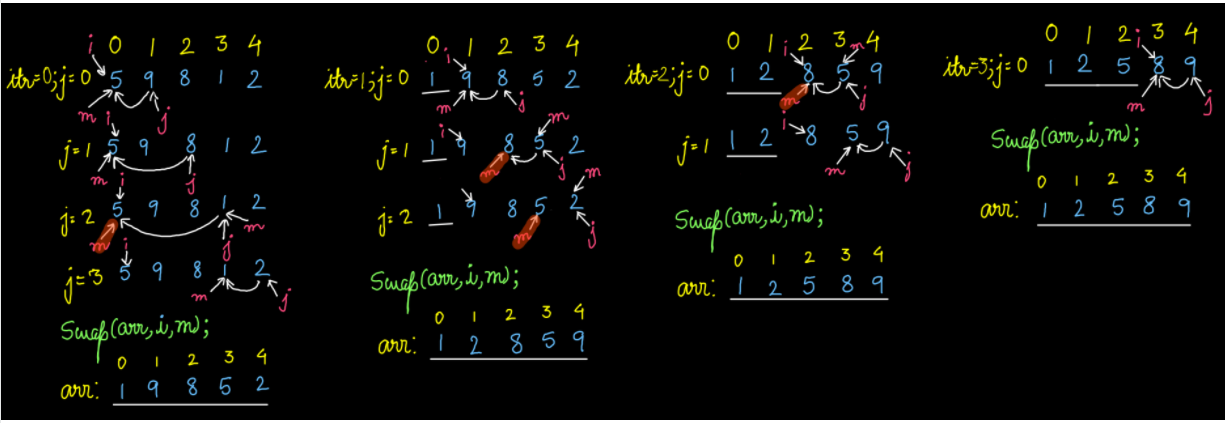 i 0 1 2 3 4
itr=0;j=0 5 9 8 1 2
m i j
j=1 5 9 8 1 2
m i j
j=2 5 9 8 1 2
m i j m
j=3 5 9 8 1 2
m j
Swap(arr,i,m);
0 1 2 3 4
arr: 1 9 8 5 2
0 i 1 2 3 4
itr=1;j=0 1 9 8 5 2
m j
i m
j=1 1 9 8 5 2
m j m
j=2 1 9 8 5 2
m j
Swap(arr,i,m);
0 1 2 3 4
arr: 1 2 8 5 9
0 1 i 2 3 m 4
itr=2;j=0 1 2 8 5 9
m j
i
j=1 1 2 8 5 9
m j
Swap(arr,i,m);
0 1 2 3 4
arr: 1 2 5 8 9
0 1 2 i 3 4
itr=3;j=0 1 2 5 8 9
m j
Swap(arr,i,m);
0 1 2 3 4
arr: 1 2 5 8 9